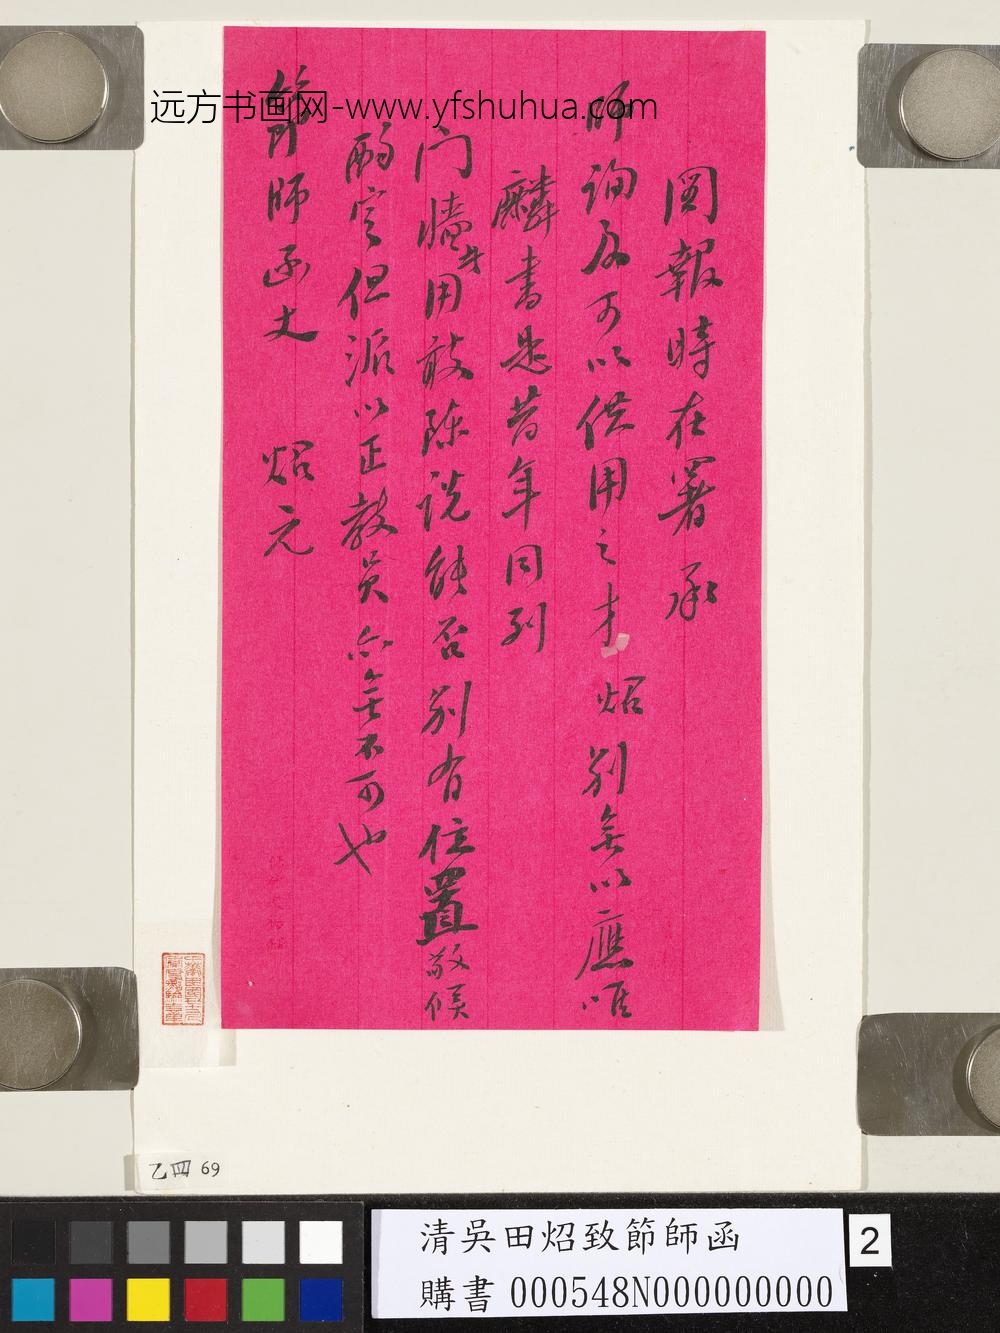 远方书画网-www.yfshuhua.com
閱報時在署承
師詢及可以供用之才炤別無以應唯
麟書是昔年同列
门牆
用敢陳說能否別有位置敬候
酌定但派以正教員亦無不可也
節師函丈 炤元
乙四 69
清吳田炤致節師函
購書 000548N000000000
2